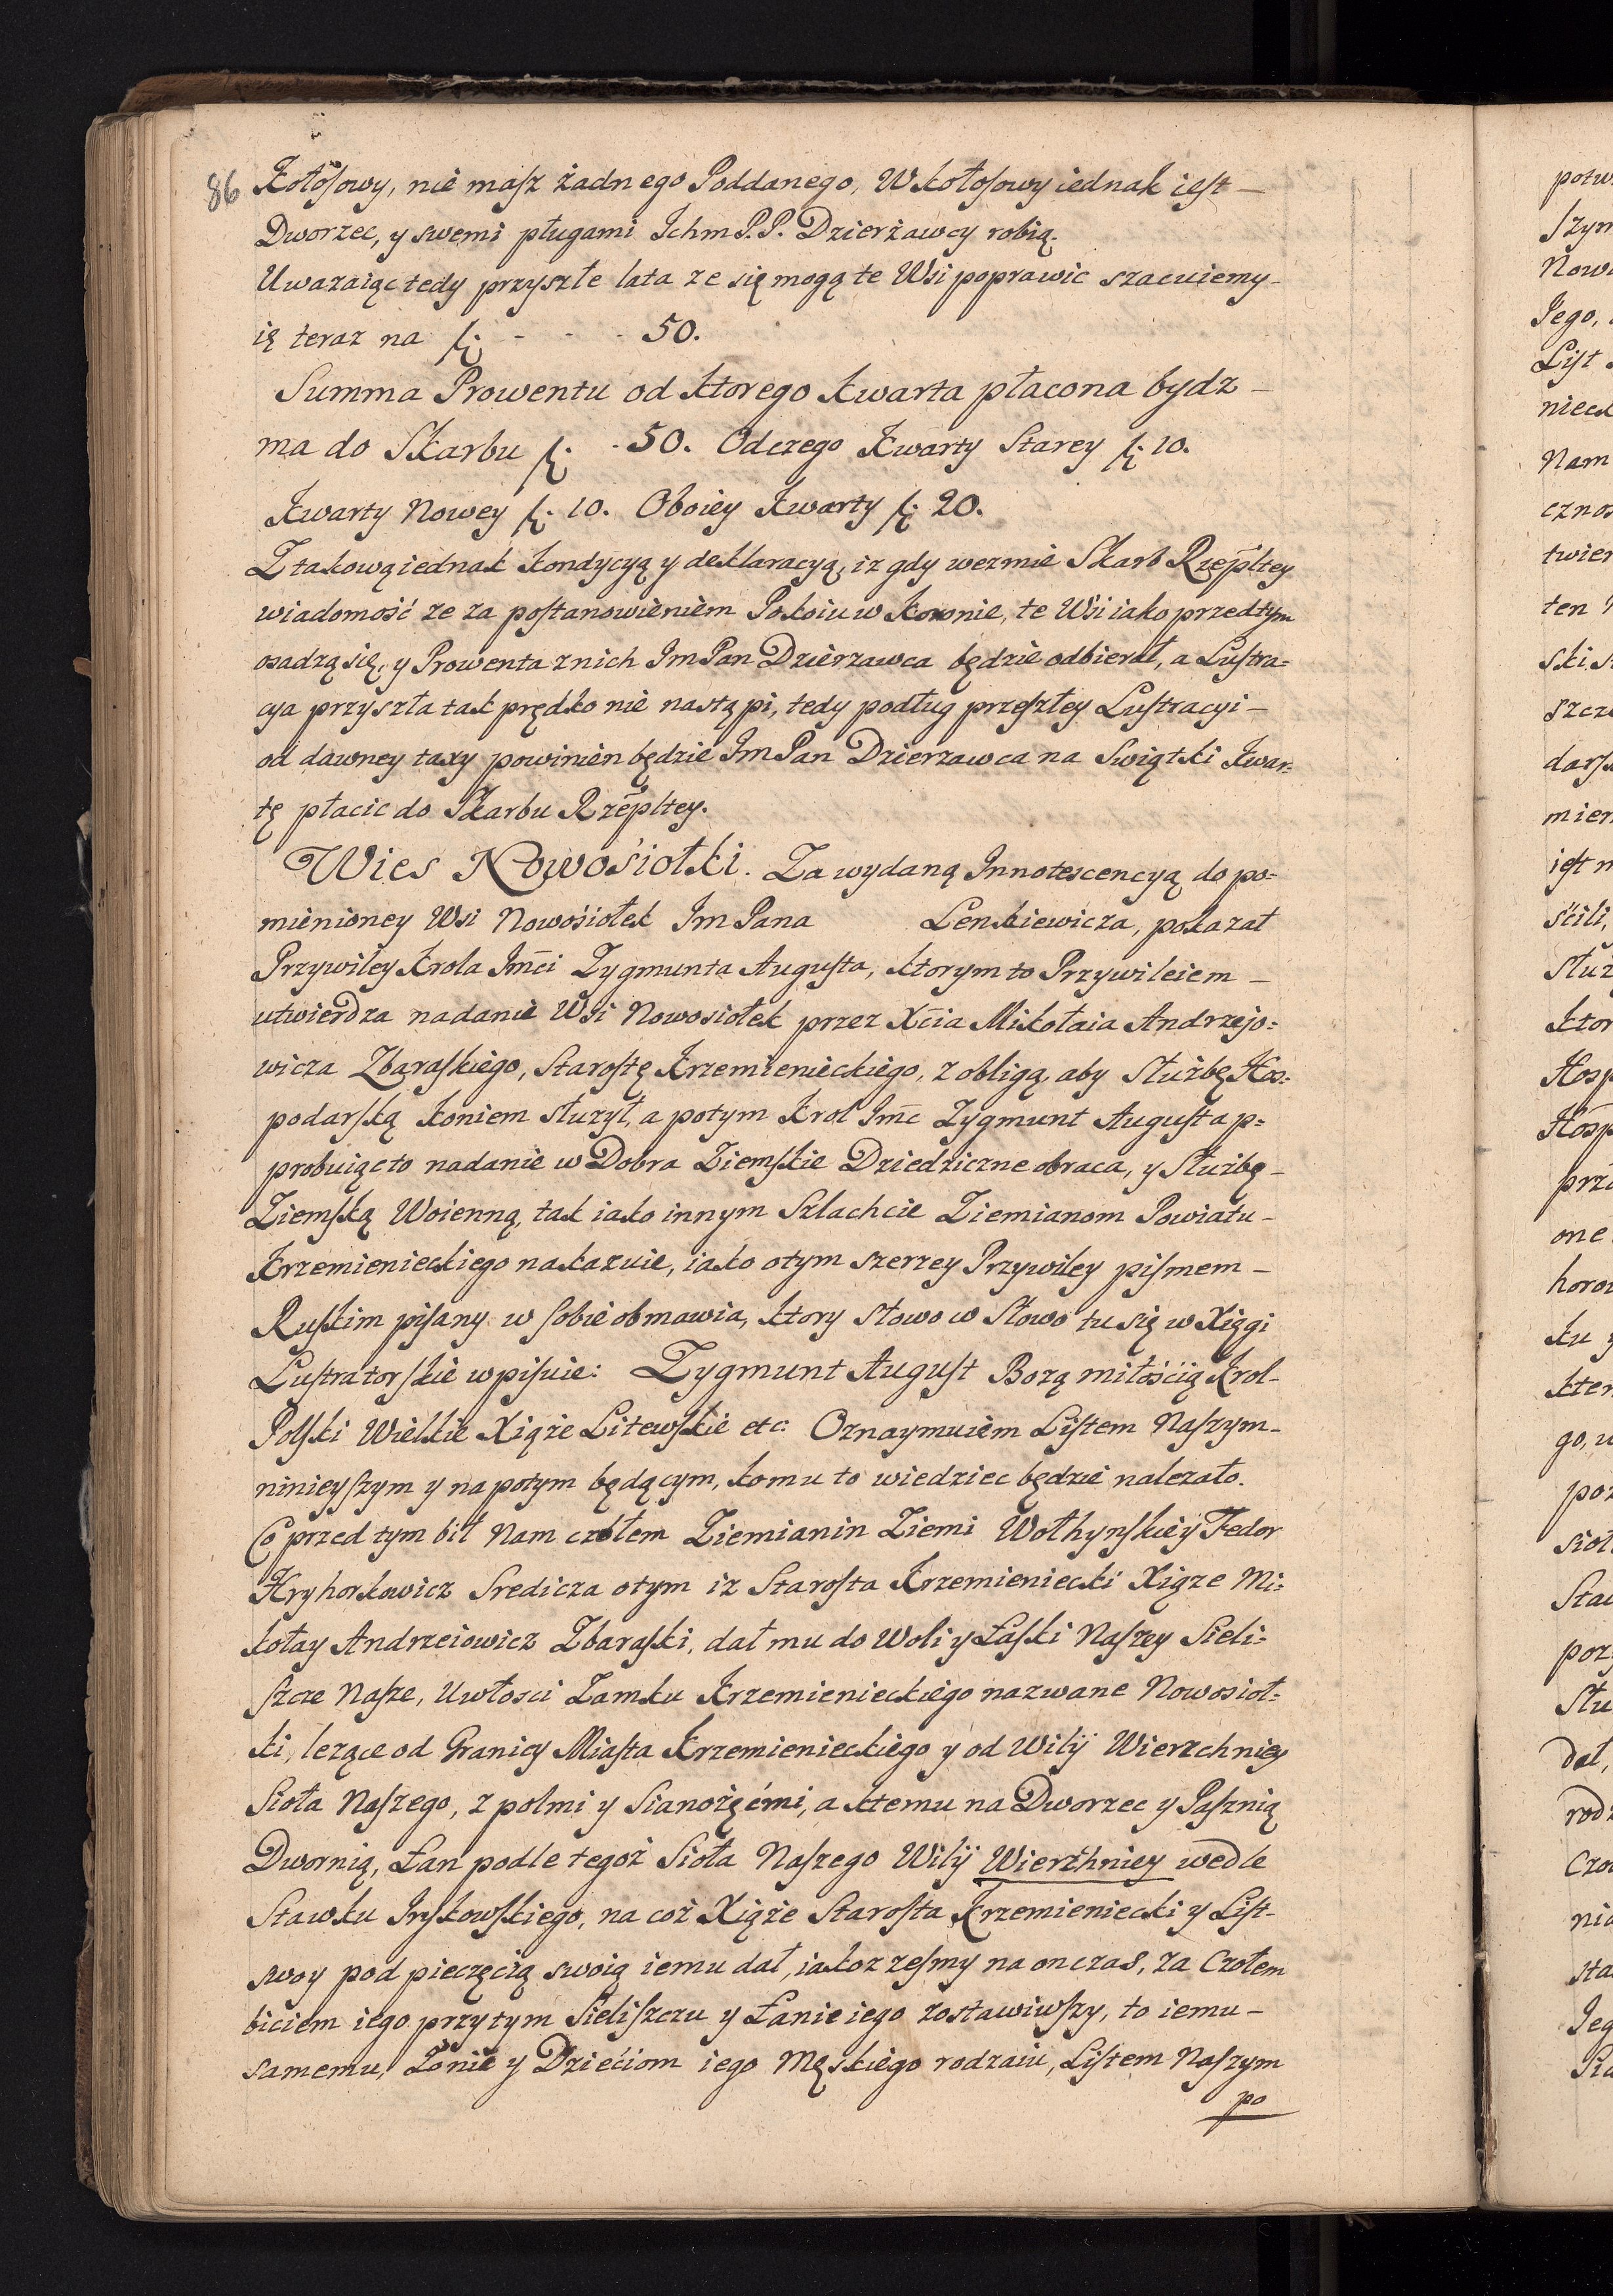 86 Kołosowy, nie masz żadnego Poddanego, W Kołosowy iednak iest –
Dworzec, y swemi pługami Ichm P.P. Dzierżawcy robią.
Uwazaiąc tedy przyszłe lata ze się mogą te Wsi poprawic szacuiemy –
ię teraz na f. - - - 50.
Summa Prowentu od ktorego Kwarta płacona bydz –
ma do Skarbu f. - 50. Od czego Kwarty Starey f. 10.
Kwarty Nowey f. 10. Oboiey Kwarty f. 20.
Z takową iednak Kondycyą y deklaracyą, iz gdy wezmie Skarb Rzepltey
wiadomość ze za postanowieniem Pokoiu w Koronie, te Wsi iako przedtym
osadzą się, y Prowenta z nich Im Pan Dzierzawca będzie odbierał, a Lustra=
cya przyszła tak prędko nie nastąpi, tedy podług przeszłey Lustracyi –
od dawney taxy powinien będzie Im Pan Dzierzawca na Swiątki Kwar=
tę płacic do Skarbu Rzepltey.
Wies Nowosiołki. Za wydaną Innotescencyą do po=
mienioney Wsi Nowosiołek Im Pana Lenkiewicza, pokazał
Przywiley Krola Imci Zygmunta Augusta, ktorym to Przywileiem –
utwierdza nadanie Wsi Nowosiołek przez Xcia Mikołaia Andrzejo=
wicza Zbaraskiego, Starostę Krzemienieckiego, z obligą, aby Służbę Hos=
podarską koniem służył, a potym Krol Imc Zygmunt August ap=
probuiąc to nadanie w Dobra Ziemskie Dziedziczne obraca, y Służbę –
Ziemską Woienną, tak iako innym Szlachcie Ziemianom Powiatu –
Krzemienieckiego nakazuie, iako o tym szerzey Przywiley pismem –
Ruskim pisany w sobie obmawia, ktory słowo w słowo tu się w Xięgi
Lustratorskie wpisuie: Zygmunt August Bozą miłościią Krol –
Polski Wielkie Xiąże Litewskie etc: Oznaymuiem Listem Naszym –
ninieyszym y na potym będącym, komu to wiedziec będzie nalezało.
Co przed tym bił Nam czołem Ziemianin Ziemi Wołhynskiey Fedor
Hryhorkowicz Sredicza o tym iz Starosta Krzemieniecki Xiąze Mi=
kołay Andrzeiowicz Zbaraski, dał mu do Woli y Łaski Naszey Sieli=
szcze Nasze, Uwłosci Zamku Krzemienieckiego nazwane Nowosioł=
ki, lezące od Granicy Miasta Krzemienieckiego y od Wilij Wierzchniey
Sioła Naszego, z polmi y Sianożęćmi, a ktemu na Dworzec y Pasznią
Dwornią, Łan podle tegoż Sioła Naszego Wilij Wierzhniey wedle
Stawku Irskowskiego, na coż Xiąże Starosta Krzemieniecki y List –
swoy pod pieczęcią swoią iemu dał, iakoz zesmy na on czas, za Czołem
biciem iego przy tym Sieliszczu y Łanie iego zostawiwszy, to iemu –
samemu, Żonie y Dziećiom iego Męskiego rodzaiu, Listem Naszym
po